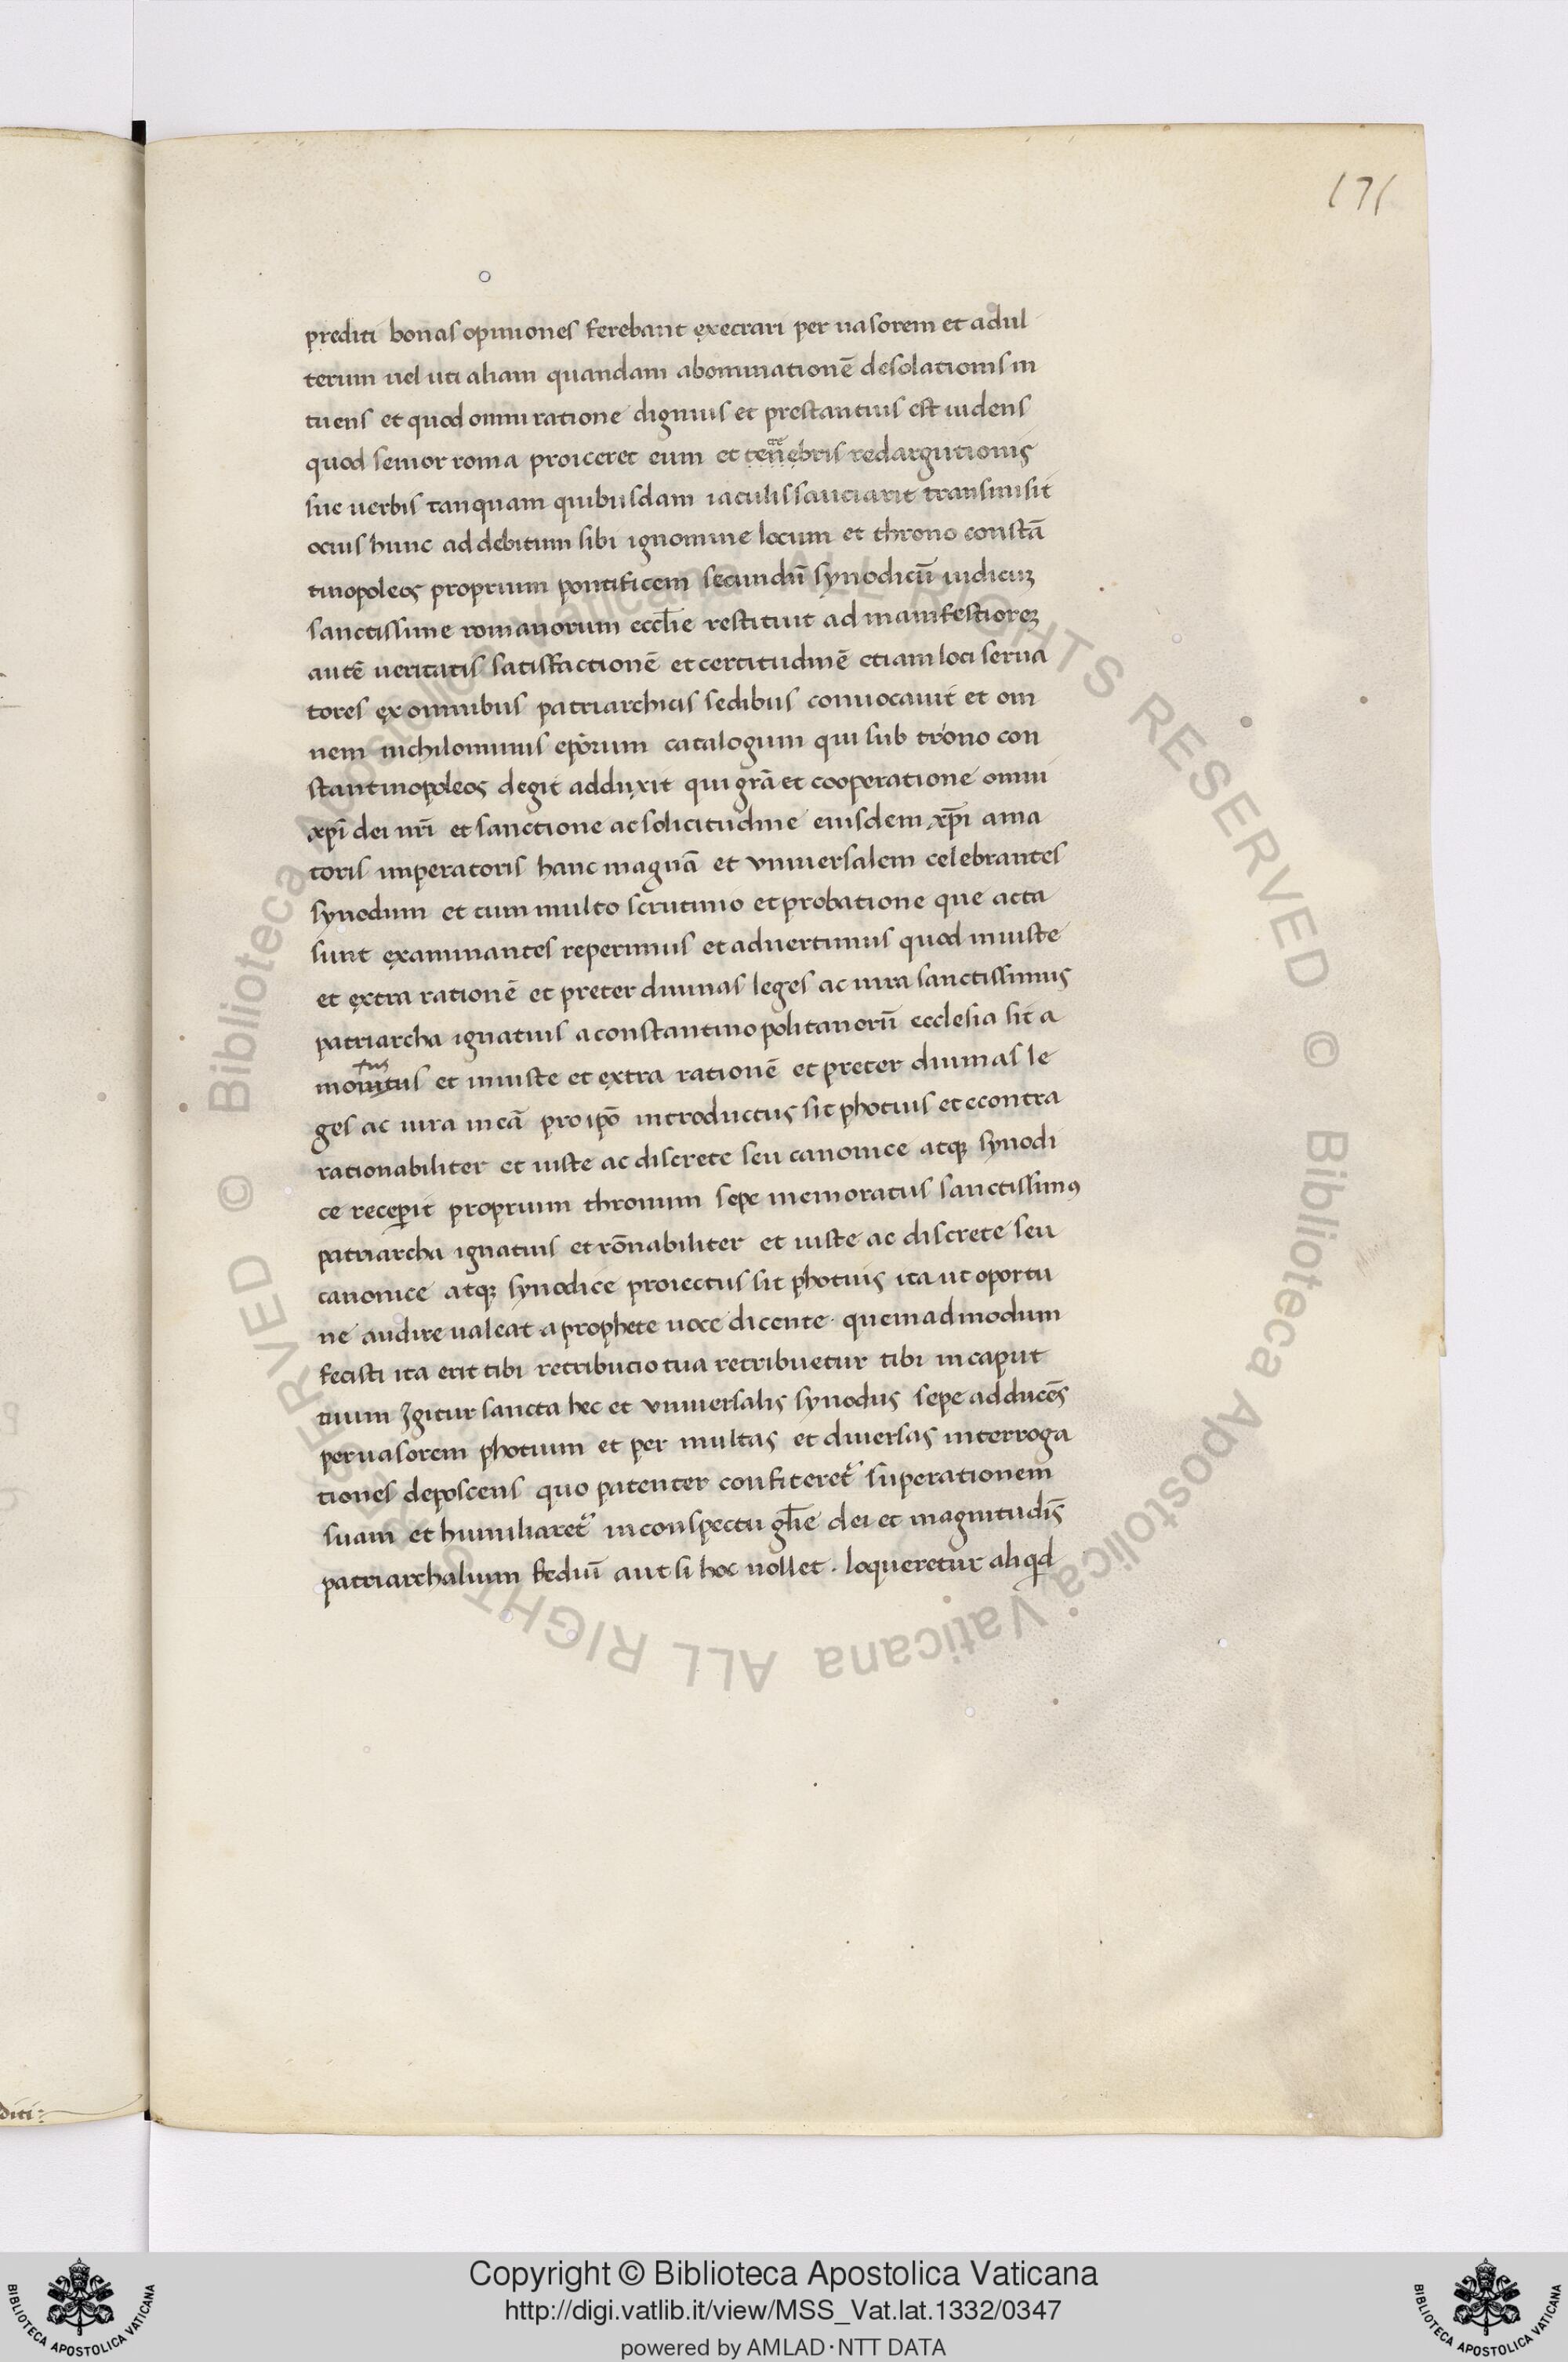 171
prediti bonas opiniones ferebant execrari per uasorem et adul
terum uel uti aliam quandam abominationē desolationis in
tuens et quod omni ratione dignius et prestantius est uidens
quod senior roma proiceret eum et redargutionis
sue uerbis tanquam quibusdam iaculis sauciarit transmisit
ocius hunc ad debitum sibi ignominie locum et throno constā
tinopoleos proprium pontificem secundū synodicū iudiciuʒ
sanctissime romanorum eccl̄ie restituit ad manifestioreʒ
autē ueritatis satisfactionē et certitudinē etiam loci serua
tores ex omnibus patriarchicis sedibus conuocauit et om
nem nichilominus ep̄orum catalogum qui sub trono con
stantinopoleos degit adduxit qui grā et cooperatione omni
xp̄i dei nr̄i et sanctione ac solicitudine eiusdem xp̄i ama
toris imperatoris hanc magnā et vniuersalem celebrantes
synodum et cum multo scrutinio et probatione que acta
sunt examinantes reperimus et aduertimus quod iniuste
et extra rationē et preter diuinas leges ac iura sanctissimus
patriarcha ignatius a constantinopolitanorū ecclesia sit a
tus
monitus et iniuste et extra rationē et preter diuinas le
ges ac iura in eā pro ipō introductus sit photius et econtra
rationabiliter et iuste ac discrete seu canonice atqꝫ synodi
ce receperit proprium thronum sepe memoratus sanctissimꝰ
patriarcha ignatius et rōnabiliter et iuste ac discrete seu
canonice atqꝫ synodice proiectus sit photius ita ut oportu
ne audire ualeat a prophete uoce dicente · quemadmodum
fecisti ita erit tibi retributio tua retribuetur tibi in caput
tuum Igitur sancta hec et vniuersalis synodus sepe adducēs
peruasorem photium et per multas et diuersas interroga
tiones deposcens quo patenter confiteret᷑ superationem
suam et humiliaret᷑ in conspectu gl̄ie dei et magnitudīs
patriarchalium sediū aut si hoc nollet · loqueretur aliqd
diti:
© Biblioteca Apostolica Vaticana ALL RIGHTS RESERVED © Biblioteca Apostolica Vaticana ALL RIGHTS RESERVED
Copyright © Biblioteca Apostolica Vaticana
http://digi.vatlib.it/view/MSS_Vat.lat.1332/0347
powered by AMLAD·NTT DATA
BIBLIOTECA APOSTOLICA VATICANA
BIBLIOTECA APOSTOLICA VATICANA